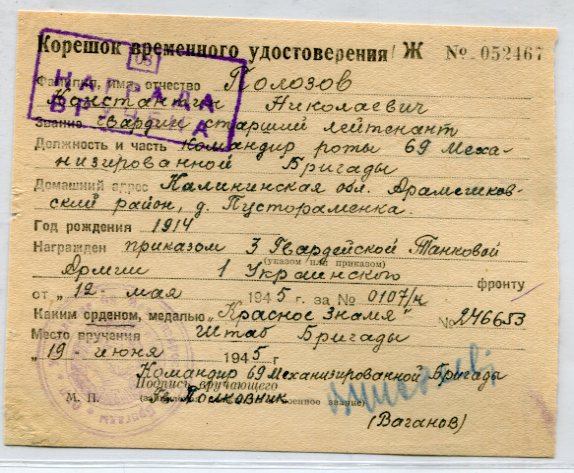 Корешок временного удостоверения Ж № 052467
НАГРАДА
ВРУЧЕНА
Фамилия, имя, отчество Полозов
Константин Николаевич
Звание гвардии старший лейтенант
Должность и часть Командир роты 69 Меха-
низированной Бригады
Домашний адрес Калининская обл. Арамешков-
ский район, д. Пустораменка.
Год рождения 1914
Награжден приказом 3 Гвардейской Танковой
(указом или приказом)
Армии 1 Украинского фронту
от „ 12 - мая 1945 г. за № 0107/н
Каким орденом, медалью „Красное Знамя" № 246653
Место вручения Штаб Бригады
„ 19 - июня 1945 г
Командир 69 Механизированной Бригады
Подпись вручающего
М. П. Гв. Полковник военное звание)
(Ваганов)